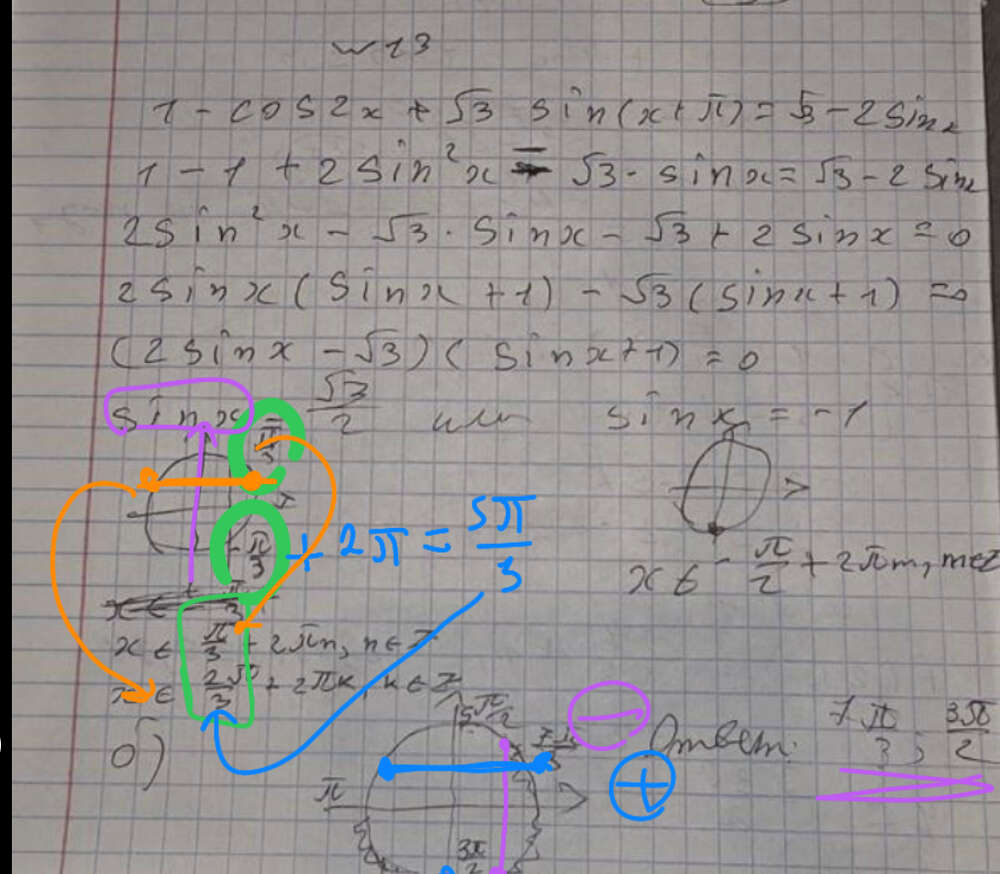 N 13
1 - cos2x + √3 sin(x+π) = √3 - 2sinx
1 - 1 + 2sin²x - √3 · sinx = √3 - 2sinx
2sin²x - √3 · sinx - √3 + 2sinx = 0
2sinx(sinx+1) - √3(sinx+1) = 0
(2sinx - √3)(sinx+1) = 0
sinx √3/2 или sinx = -1
π/3
-π/3 + 2π = 5π/3
x ∈ -π/2 + 2πm, m∈Z
x ∈ π/3 + 2πn, n∈Z
x ∈ 2π/3 + 2πk, k∈Z
5π/2
б) 7π/3 − Ответ: 7π/3; 3π/2
π +
3π/2